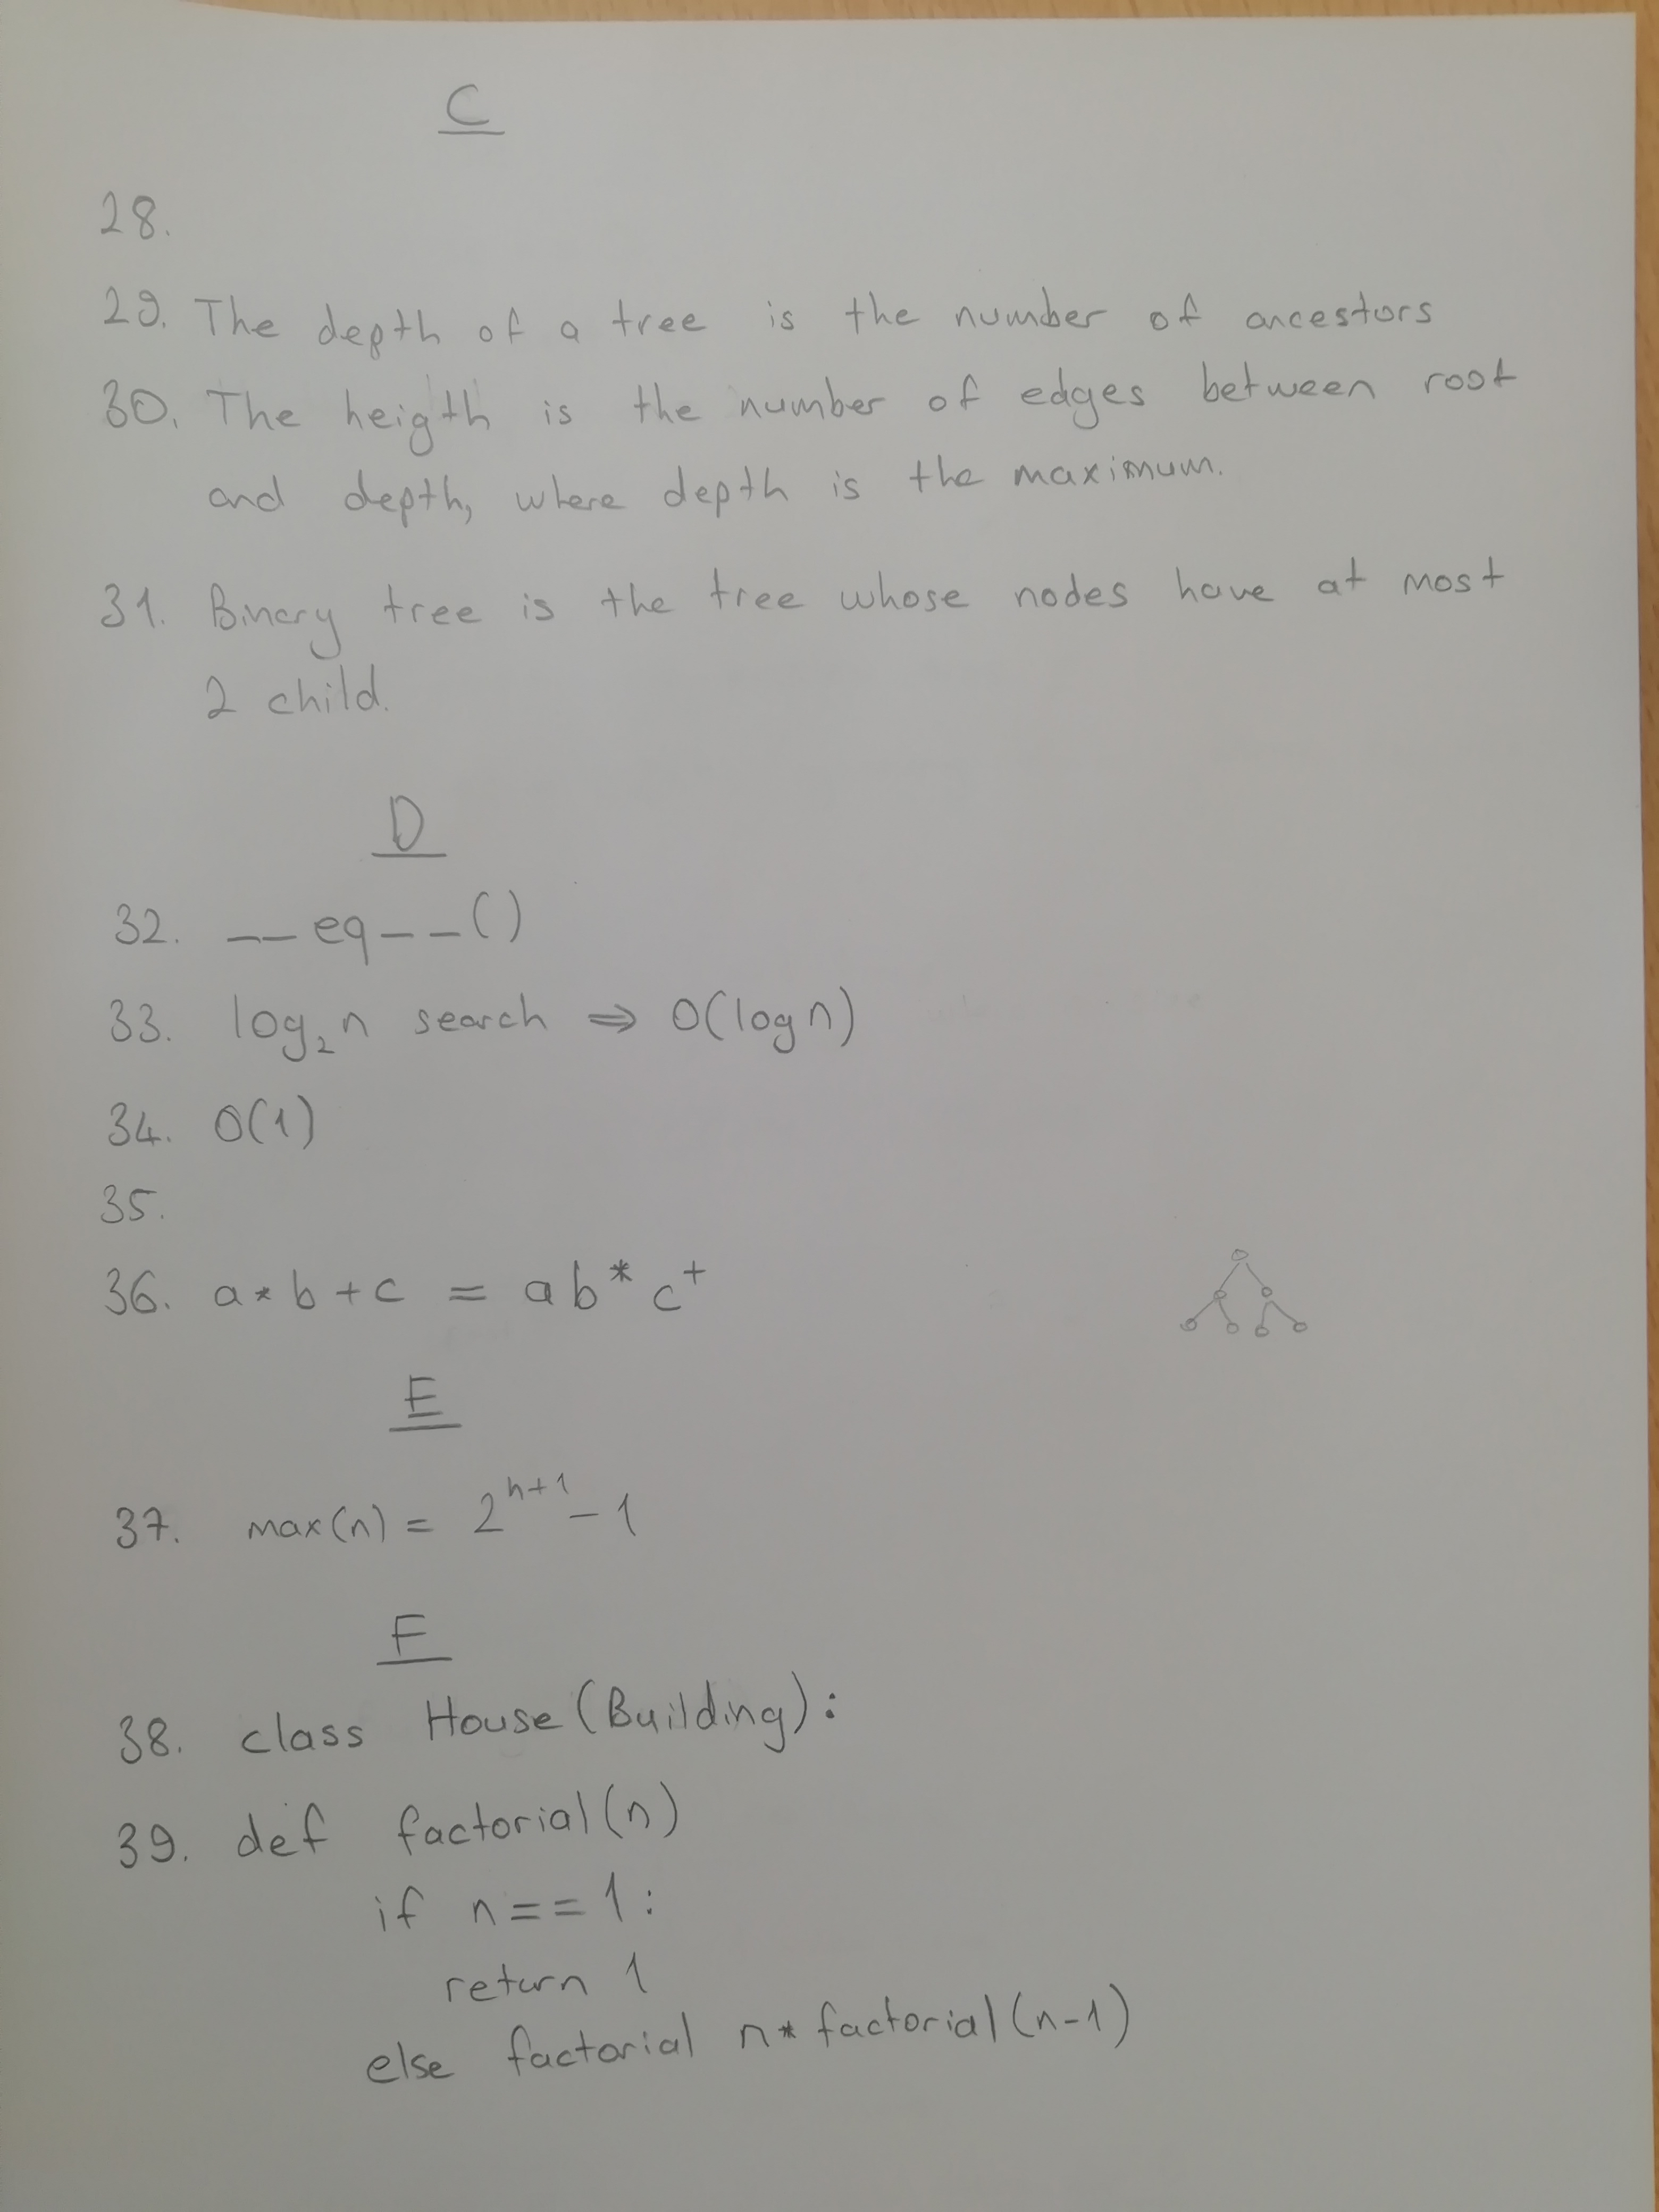 C
28.
29. The depth of a tree is the number of ancestors
30. The heigth is the number of edges between root
and depth, where depth is the maximum.
31. Binary tree is the tree whose nodes have at most
2 child.
D
32. __eq__()
33. log₂n search ⇒ O(log n)
34. O(1)
35.
36. a*b+c = ab*c+
E
37. max(n) = 2^(h+1) - 1
F
38. class House(Building):
39. def factorial(n)
if n==1:
return 1
else factorial n*factorial(n-1)